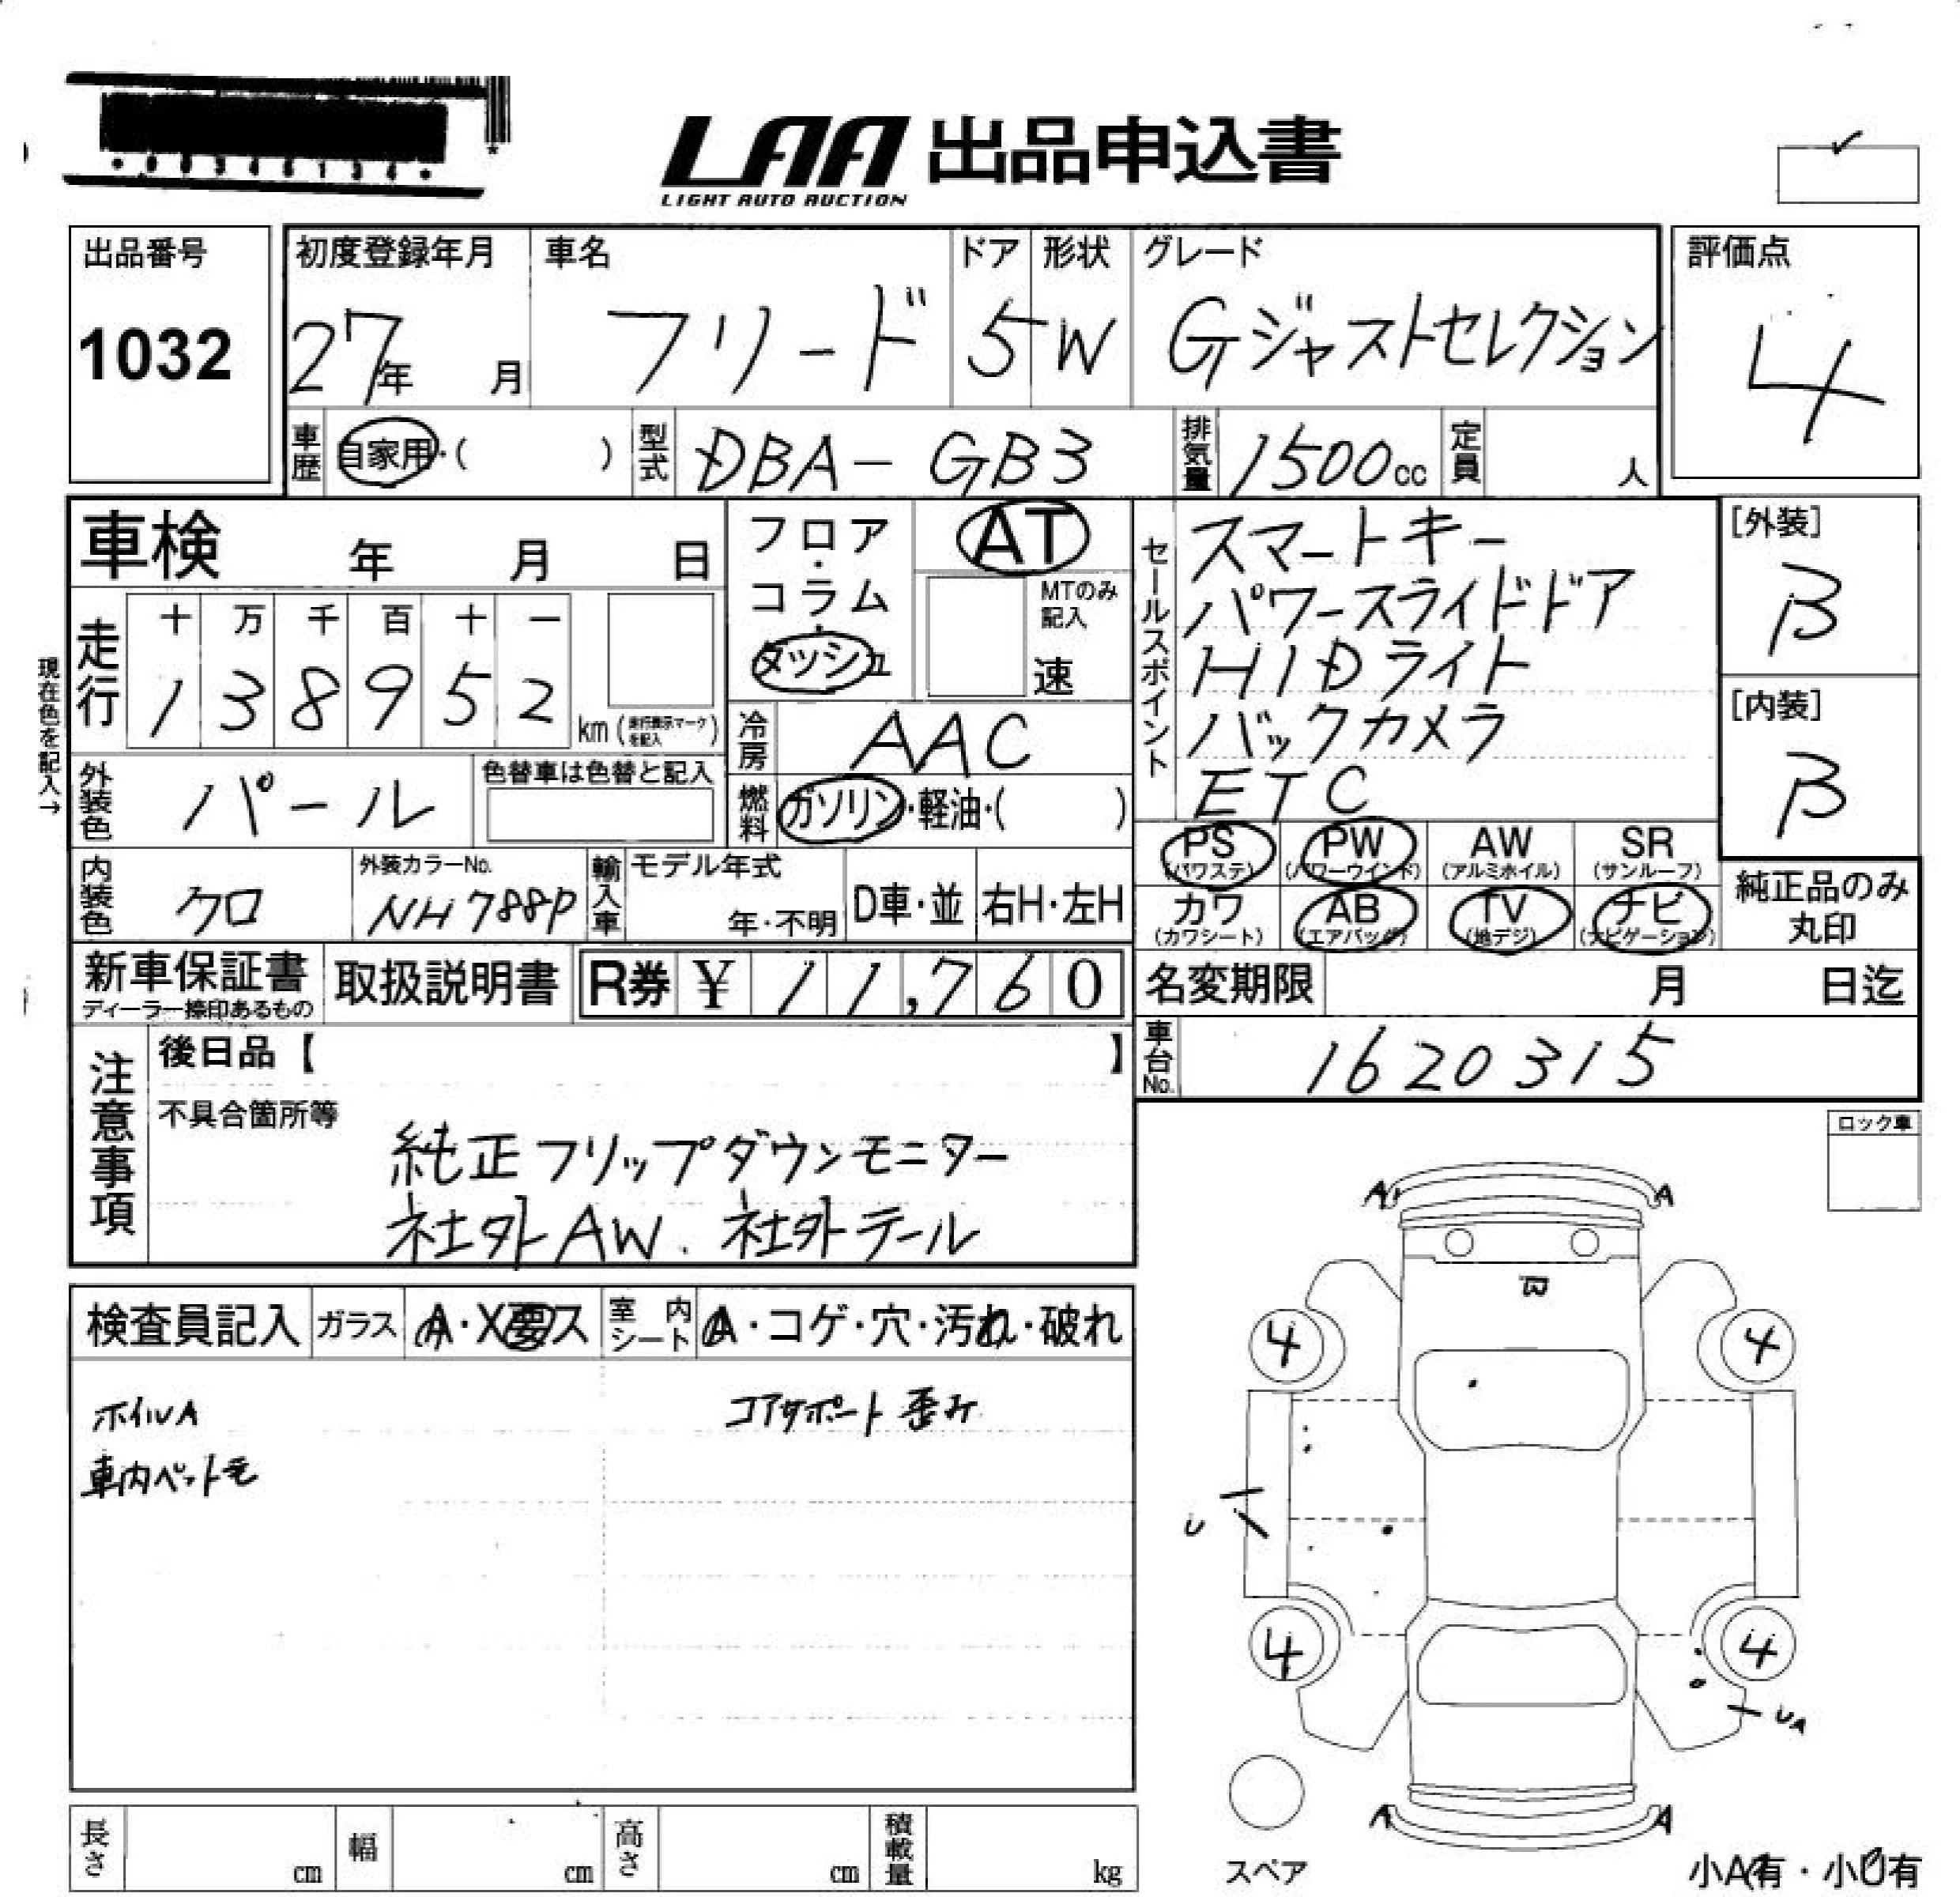 LAA 出品申込書
LIGHT AUTO AUCTION
出品番号
1032
初度登録年月
27年 月
車名
フリード
ドア
5
形状
W
グレード
Gジャストセレクション
評価点
4
車歴 自家用・( )
型式 DBA-GB3
排気量 1500cc
定員 人
車検 年 月 日
フロア・コラム・ダッシュ
AT
MTのみ記入
速
セールスポイント
スマートキー
パワースライドドア
HIDライト
バックカメラ
ETC
[外装]
B
[内装]
B
現在色を記入→
走行
十 万 千 百 十 一
1 3 8 9 5 2
km (走行表示マークを記入)
冷房 AAC
外装色 パール
色替車は色替と記入
燃料 ガソリン・軽油・( )
PS (パワステ) PW (パワーウインド) AW (アルミホイル) SR (サンルーフ)
カワ (カワシート) AB (エアバッグ) TV (地デジ) ナビ (ナビゲーション)
純正品のみ丸印
内装色 クロ
外装カラーNo. NH788P
輸入車 モデル年式 年・不明 D車・並 右H・左H
新車保証書
ディーラー捺印あるもの
取扱説明書
R券 ¥ 11,760
名変期限 月 日迄
車台No. 1620315
注意事項
後日品【 】
不具合箇所等
純正フリップダウンモニター
社外AW. 社外テール
ロック車
検査員記入 ガラス A・X要ス 室内シート A・コゲ・穴・汚れ・破れ
ホイルA
コアサポート歪み
車内ペット毛
A A
B
4 4
U
4 4
UA
A A
スペア
小A有・小U有
長さ cm 幅 cm 高さ cm 積載量 kg